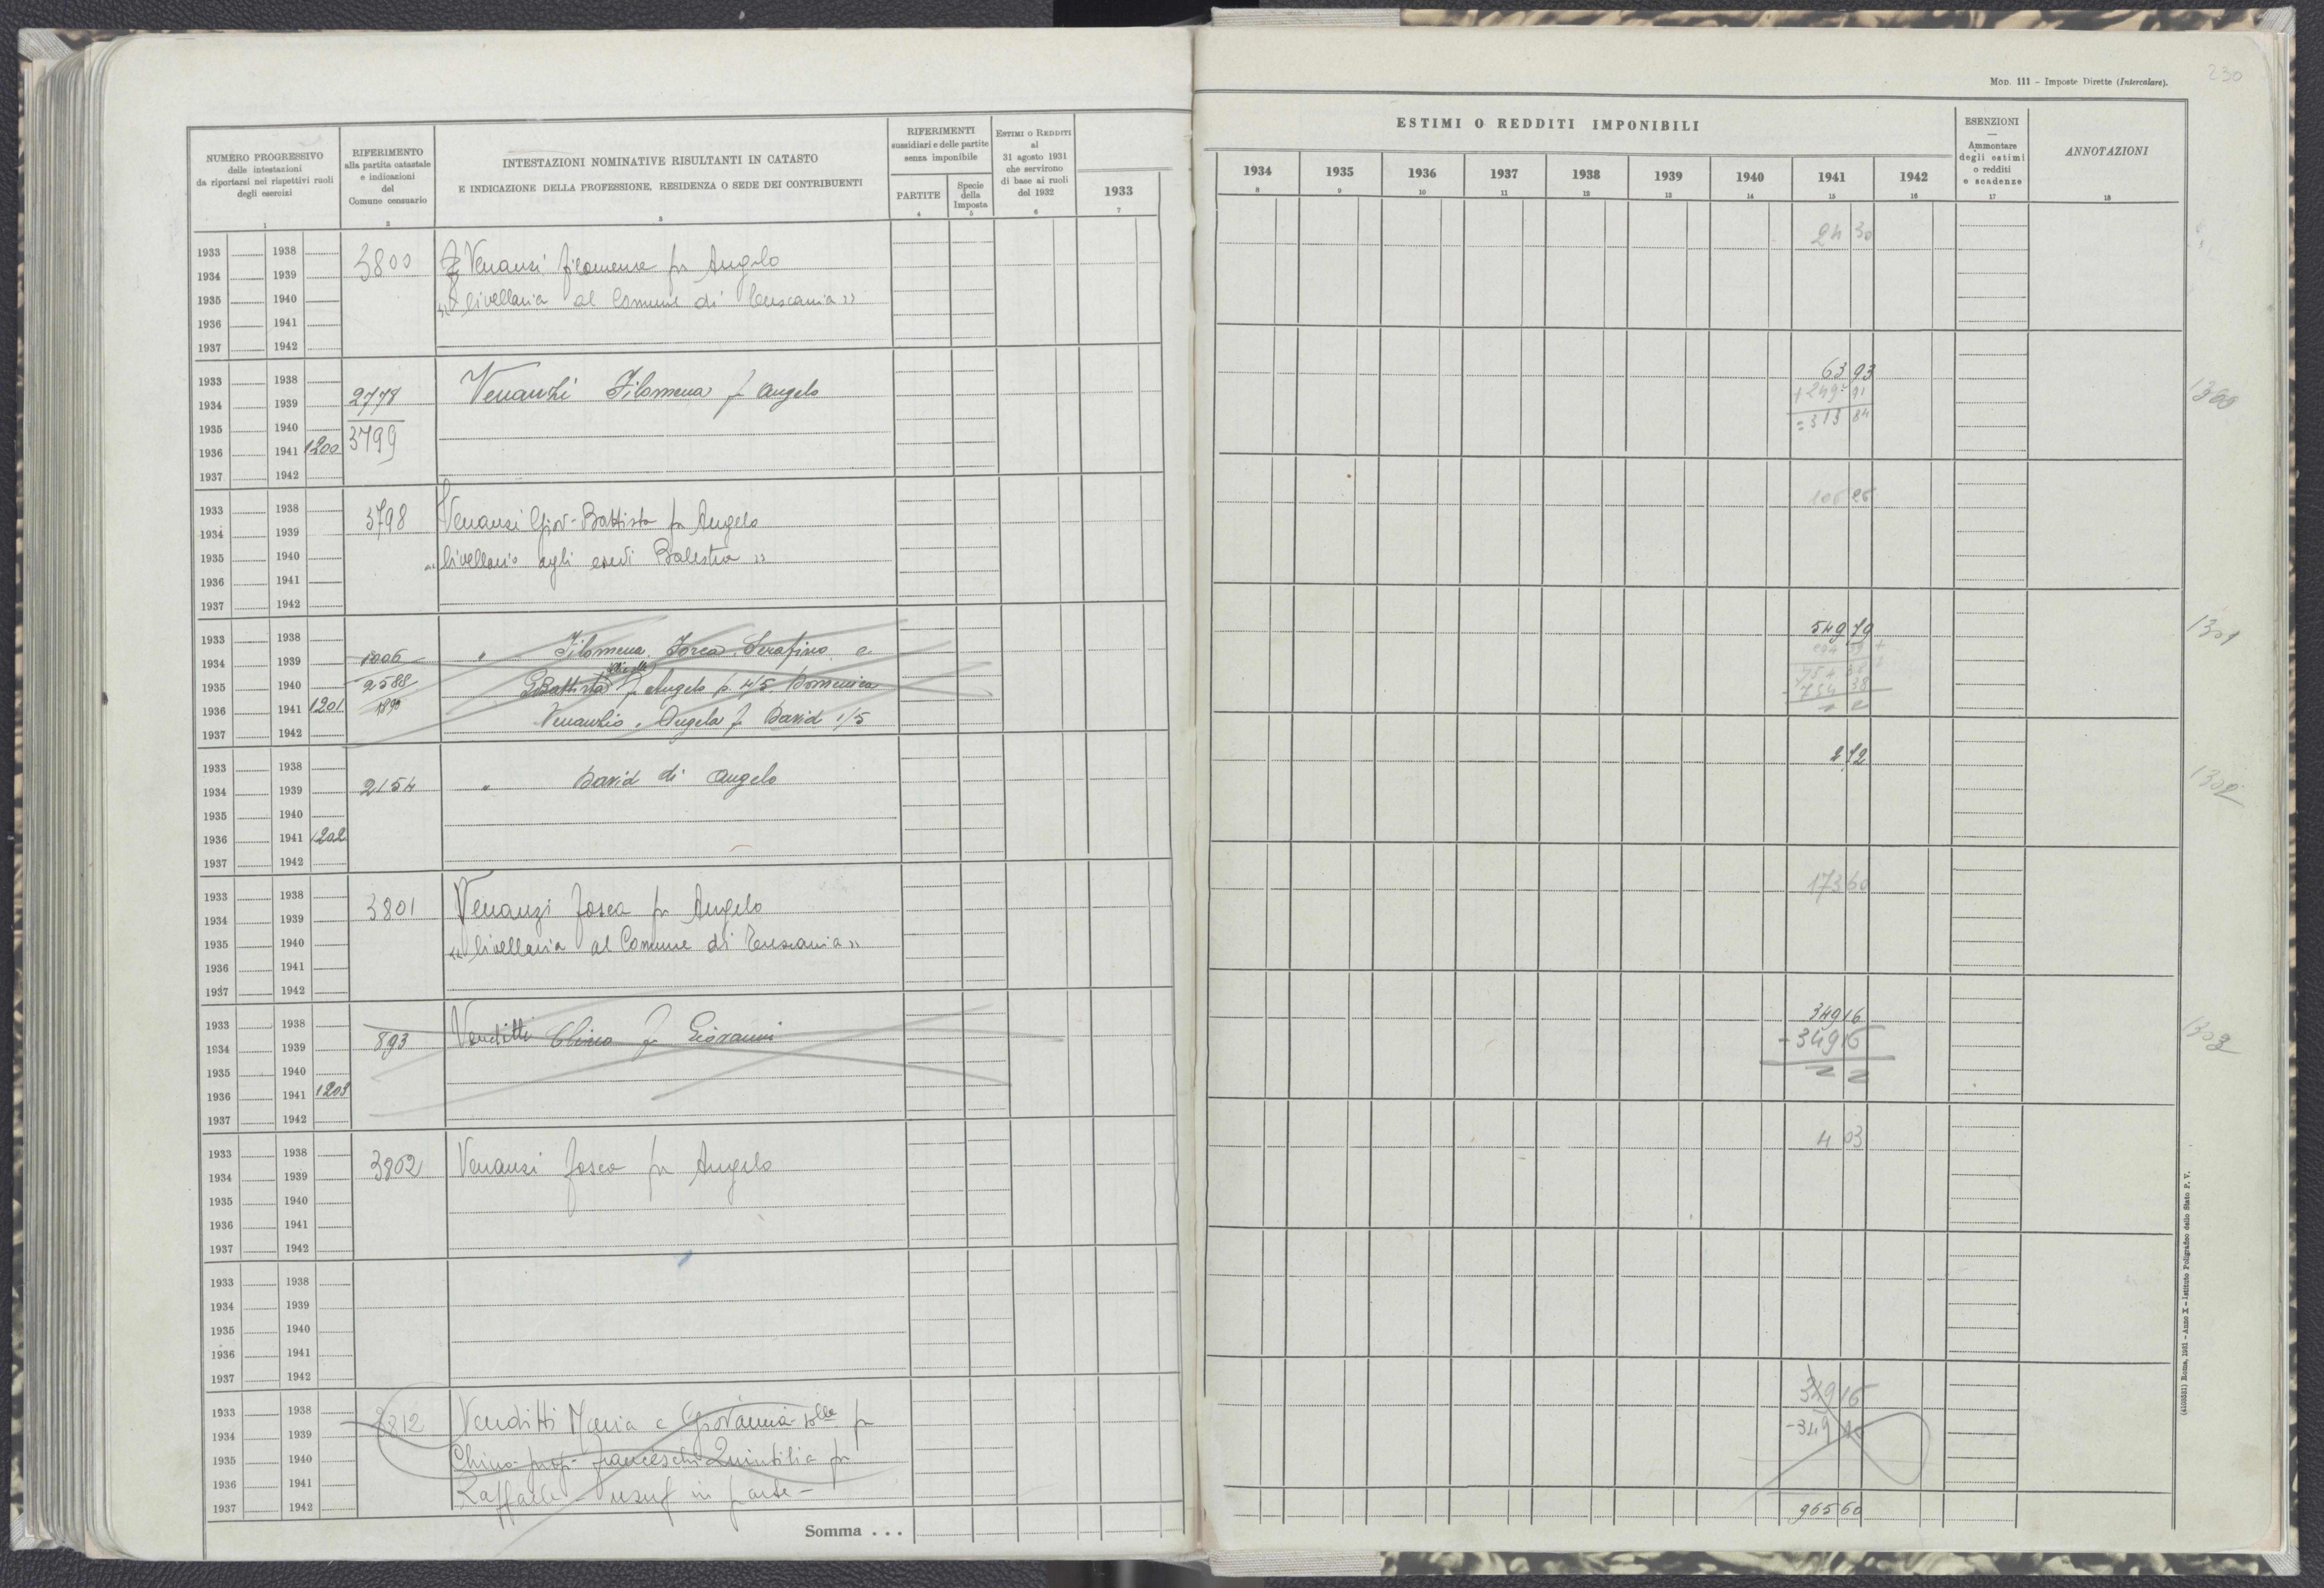 230
MOD. 111 – Imposte Dirette (Intercalare).
NUMERO PROGRESSIVO
delle intestazioni
da riportarsi nei rispettivi ruoli
degli esercizi
1
RIFERIMENTO
alla partita catastale
e indicazioni
del
Comune censuario
2
INTESTAZIONI NOMINATIVE RISULTANTI IN CATASTO
E INDICAZIONE DELLA PROFESSIONE, RESIDENZA O SEDE DEI CONTRIBUENTI
3
RIFERIMENTI
sussidiari e delle partite
senza imponibile
PARTITE
4
Specie
della
Imposta
5
ESTIMI O REDDITI
al
31 agosto 1931
che servirono
di base ai ruoli
del 1932
6
1933
7
ESTIMI O REDDITI IMPONIBILI
1934 1935 1936 1937 1938 1939 1940 1941 1942
8 9 10 11 12 13 14 15 16
ESENZIONI
—
Ammontare
degli estimi
o redditi
e scadenze
17
ANNOTAZIONI
18
1933 1938
1934 1939 3800 Venanzi Filomena fu Angelo 24 30
1935 1940 "livellaria al Comune di Tuscania"
1936 1941
1937 1942
1933 1938 63 93
1934 1939 2778 Venanzi Filomena f Angelo +249 91 1300
1935 1940 3799 =313 84
1936 1941 1200
1937 1942
1933 1938 3798 Venanzi Giov-Battista fu Angelo 106 26
1934 1939
1935 1940 "livellario agli eredi Balestra"
1936 1941
1937 1942
1933 1938 549 79 1301
1934 1939 1006 " Filomena Fosca Serafino e
1935 1940 2588 GBattista f Angelo p 4/5 Domenica 754 38
1936 1941 1201 Venanzio, Angela f David 1/5 -754 38
1937 1942
1933 1938 2 72
1934 1939 2154 " David di Angelo 1302
1935 1940
1936 1941 1202
1937 1942
1933 1938 173 60
1934 1939 3801 Venanzi Fosca fu Angelo
1935 1940 "livellaria al Comune di Tuscania"
1936 1941
1937 1942
1933 1938 349 16
1934 1939 893 Venditti Chino f Giovanni -349 16 1303
1935 1940
1936 1941 1203
1937 1942
1933 1938 4 03
1934 1939 3802 Venanzi Fosca fu Angelo
1935 1940
1936 1941
1937 1942
1933 1938
1934 1939
1935 1940
1936 1941
1937 1942
1933 1938 349 16
1934 1939 3812 Venditti Maria e Giovanna solle fu -349 16
1935 1940 Chino prop- Franceschi Quintilia fu
1936 1941 Raffaele - usuf in parte -
1937 1942
Somma . . . 965 60
(4103531) Roma, 1931 – Anno X – Istituto Poligrafico dello Stato P. V.